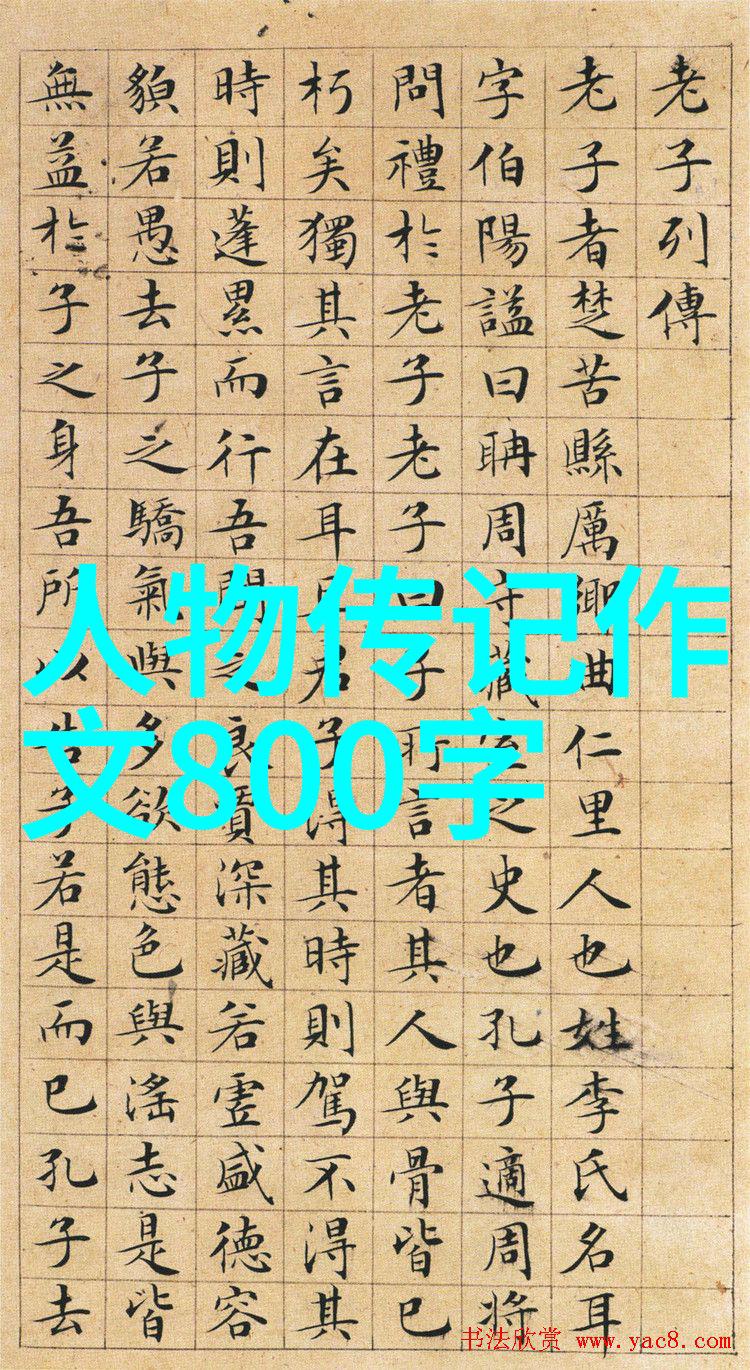 老子列傳
老子者楚苦縣厲鄉曲仁里人也姓李氏名耳
字伯陽謚曰聃周守藏室之史也孔子適周將
問禮於老子老子曰子所言者其人與骨皆已
朽矣獨其言在耳且君子得其時則駕不得其
時則蓬累而行吾聞之良賈深藏若虛盛德容
䫉若愚去子之驕氣與多欲態色與淫志是皆
無益於子之身吾所以告子若是而已孔子去
人物传记作
文800字
书法欣赏 www.yac8.com